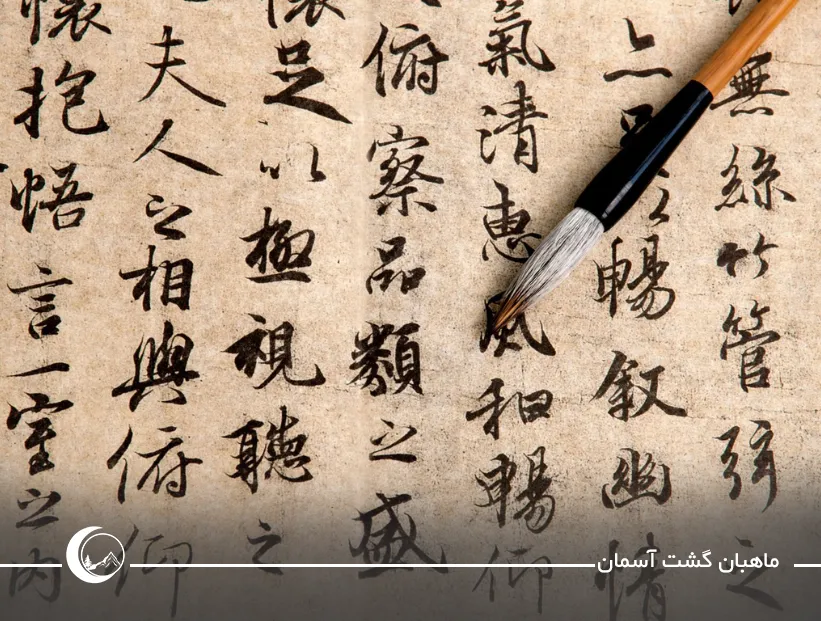 無絲竹管弦之
亦足以暢叙幽情
氣清惠風和暢仰
俯察品類之盛
懷足以極視聽之
夫人之相與俯仰
懷抱悟言一室之內
ماهبان گشت آسمان